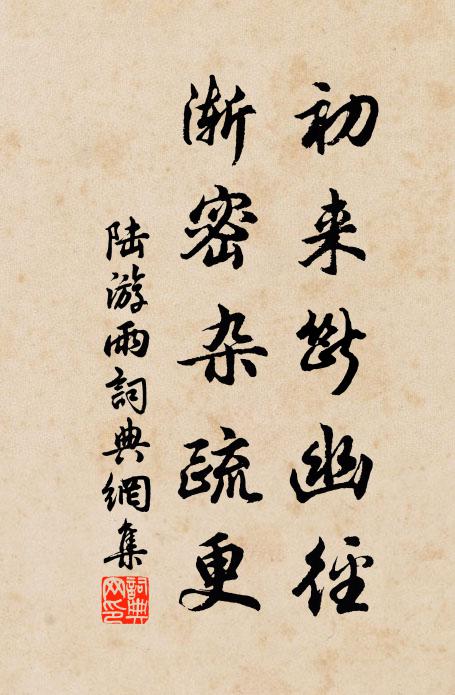 初来断幽徑
渐密杂疏更
陆游雨詞典網集
詞典
网印